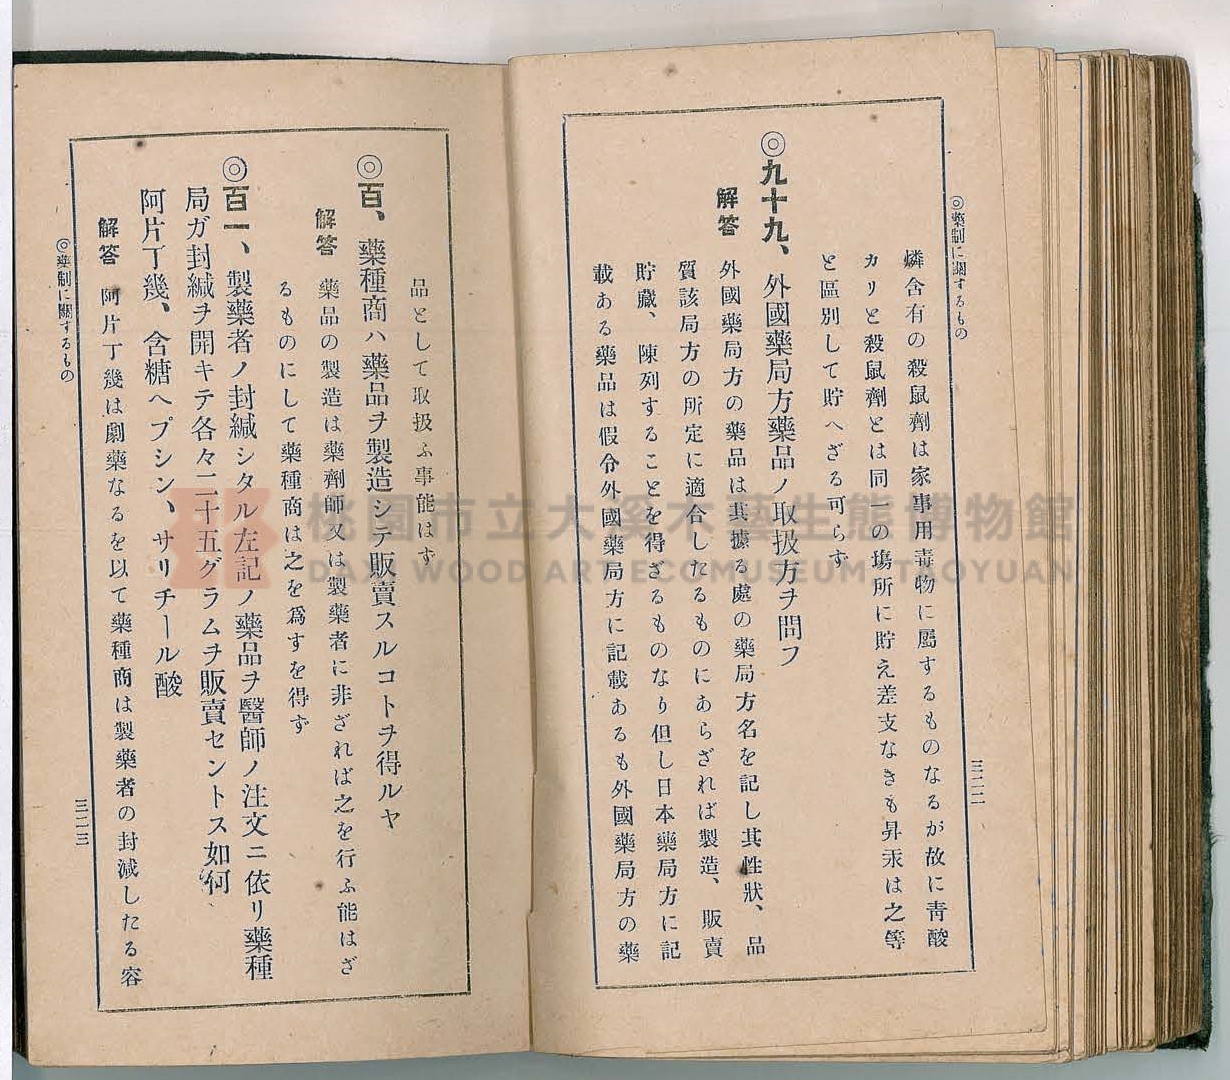 ◎藥制に關するもの
燐含有の殺鼠劑は家事用毒物に屬するものなるが故に靑酸
カリと殺鼠劑とは同一の場所に貯え差支なきも昇汞は之等
と區別して貯へざる可らず
◎九十九、外國藥局方藥品ノ取扱方ヲ問フ
解答 外國藥局方の藥品は其據る處の藥局方名を記し其性狀、品
質該局方の所定に適合したるものにあらざれば製造、販賣
貯藏、陳列することを得ざるものなり但し日本藥局方に記
載ある藥品は假令外國藥局方に記載あるも外國藥局方の藥
三二二
品として取扱ふ事能はず
◎百、藥種商ハ藥品ヲ製造シテ販賣スルコトヲ得ルヤ
解答 藥品の製造は藥劑師又は製藥者に非ざれば之を行ふ能はざ
るものにして藥種商は之を爲すを得ず
◎百一、製藥者ノ封緘シタル左記ノ藥品ヲ醫師ノ注文ニ依リ藥種
局ガ封緘ヲ開キテ各々二十五グラムヲ販賣セントス如何
阿片丁幾、含糖ヘプシン、サリチール酸
解答 阿片丁幾は劇藥なるを以て藥種商は製藥者の封減したる容
◎藥制に關するもの
三二三
桃園市立大溪木藝生態博物館
DAXI WOOD ART ECOMUSEUM, TAOYUAN